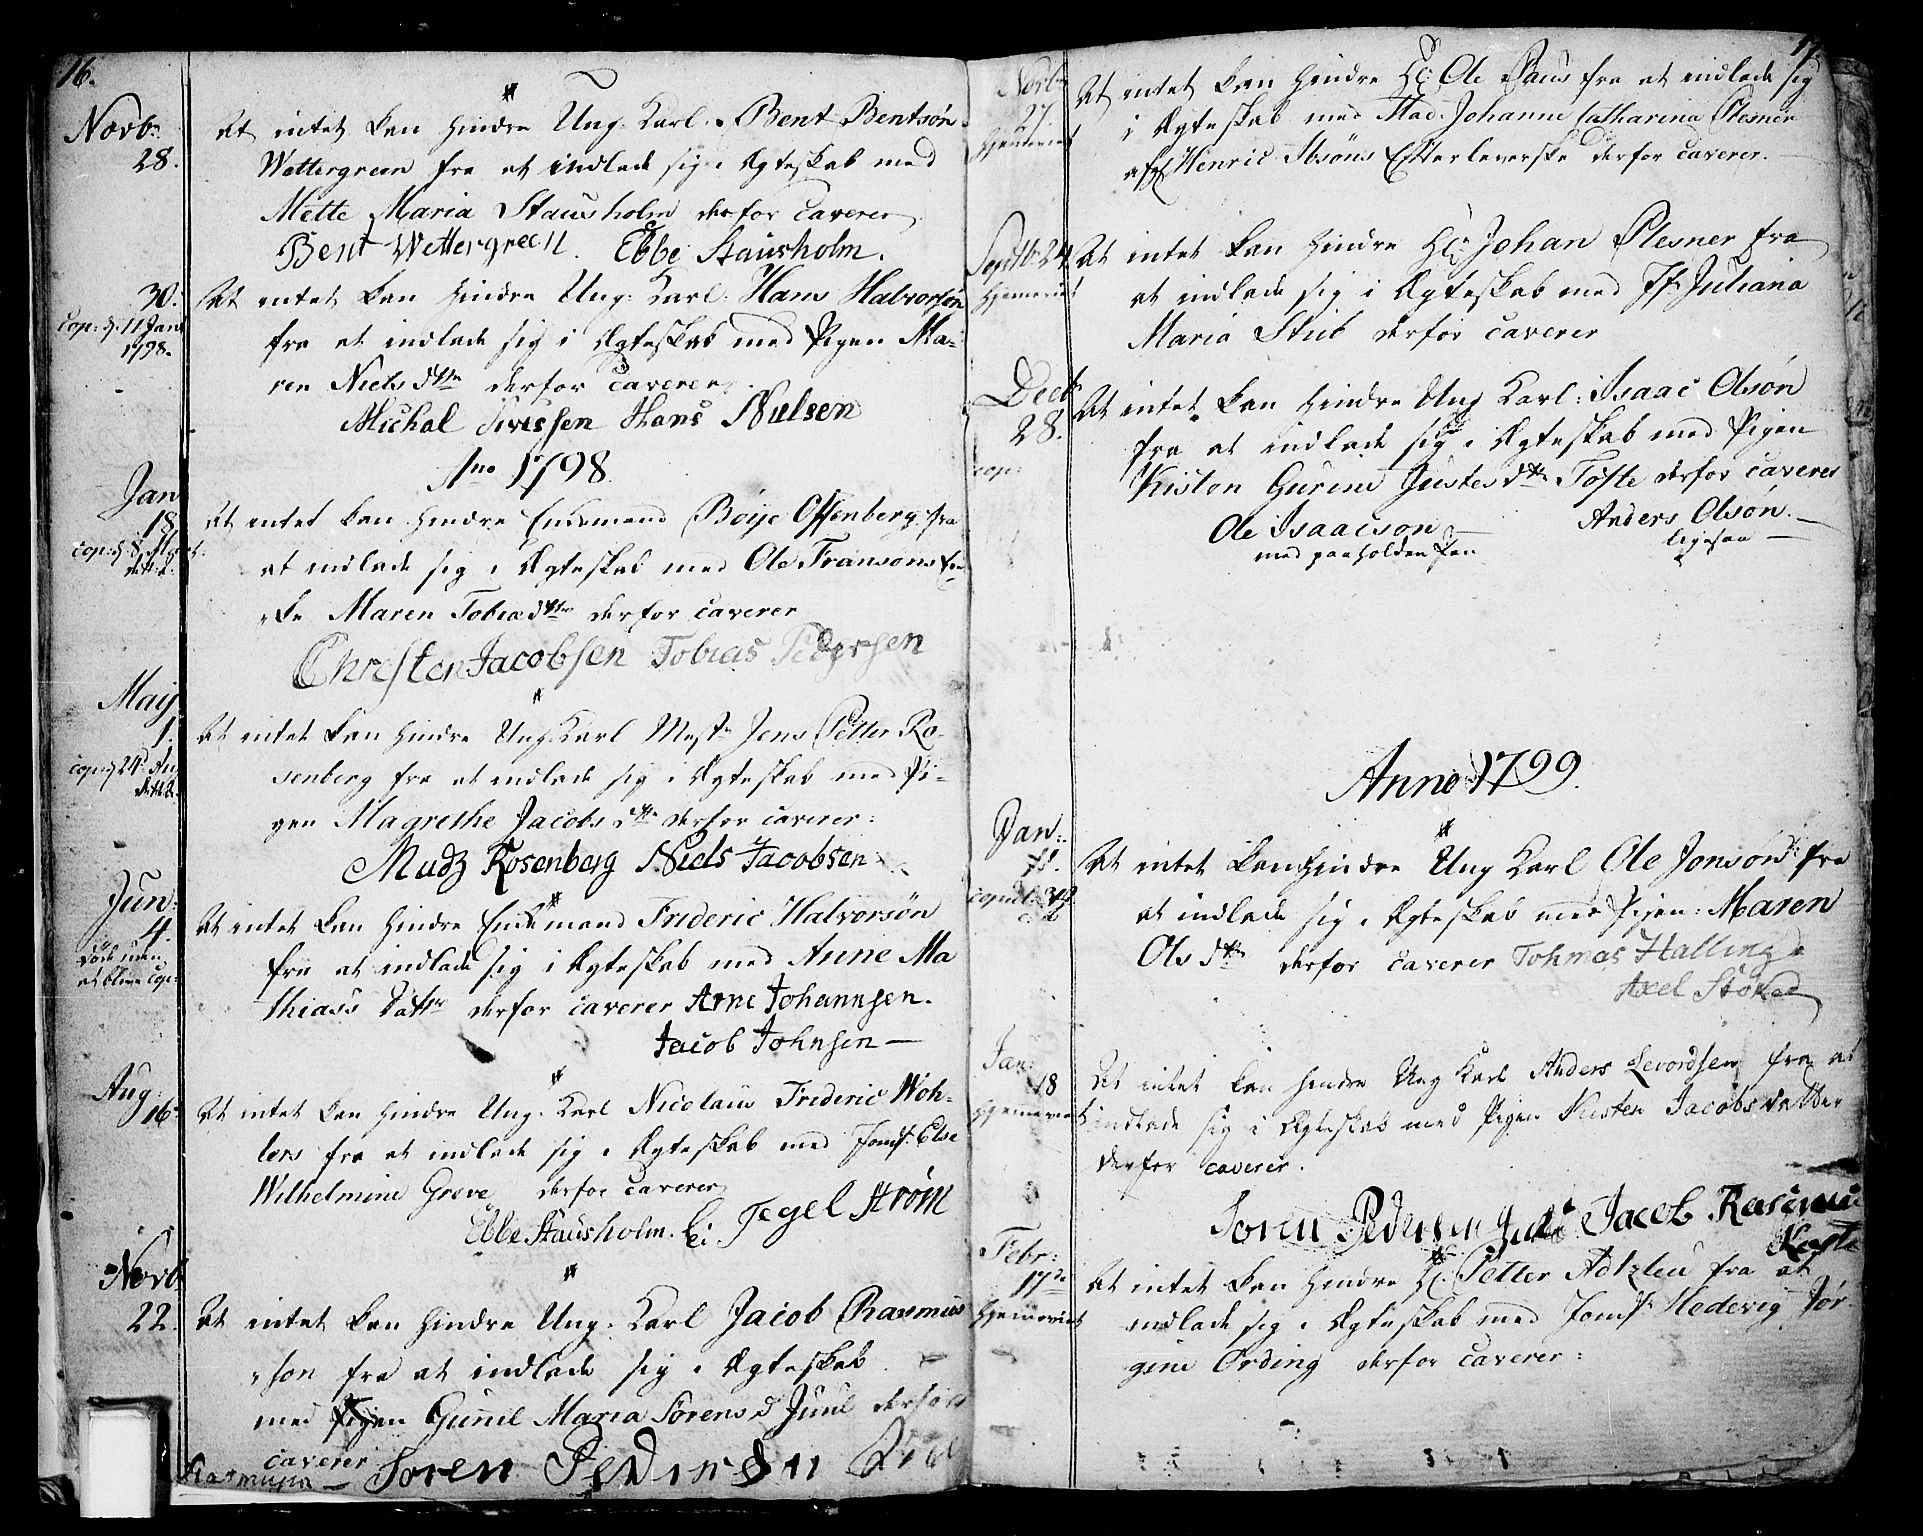 16.
Novb:
28.
At intet kan hindre Ung. Karl. Bent Bentsøn
Wettergreen fra at indlade sig i Ægteskab med
Mette Maria Stausholm derfor Caverer
Bent Wettergreen. Ebbe Stausholm.
30.
Cop: d. 11 Jan:
1798.
At intet kan hindre Ung: Karl: Hans Halvorsøn
fra at indlade sig i Ægteskab med Pigen Ma-
ren Niels dtr derfor Caverer
Michal Hans Nielsen
Ano 1798.
Jan
18.
At intet kan hindre Enkemand Boije Offenberg fra
at indlade sig i Ægteskab med Ole Fransøns En-
ke Maren Tobiædtr derfor caverer
Christen Jacobsen Tobias Pedersen
Maij
1.
At intet kan hindre Ung. Karl Mest: Jens Petter Ro-
senberg fra at indlade sig i Ægteskab med Pi-
gen Magrethe Jacobs dtr derfor caverer:
Madz Rosenberg Niels Jacobsen
Jun:
4.
døde uden
at blive cop:
At intet kan hindre Enkemand Frideric Halvorsøn
fra at indlade sig i Ægteskab med Anne Ma
thiass Dattr derfor caverer Arne Johannsen.
Jacob Johnsen —
Aug:
16
At intet kan hindre Ung. Karl Nicolaus Frideric Woh-
lers fra at indlade sig i Ægteskab med Jomf. Else
Wilhelmine Greve derfor caverer
Ebbe Stausholm. Tegel Strøm
Novb
22.
At intet kan hindre Ung. Karl Jacob Rasmus
søn fra at indlade sig i Ægteskab
med Pigen Gunil Maria Sørens d Juul derfor
caverer
Soren Pedersen Juel
Rasmusen —
17.
Novbr
27
hjemviet
At intet kan hindre Hr: Ole Paus fra at indlade sig
i Ægteskab med Mad. Johanne Catharina Plesner
afg: Henric Ibsøns Efterleverske derfor caverer.
Septb 24.
hjemviet
At intet kan hindre Hr: Johan Plesner fra
at indlade sig i Ægteskab med Jfr Juliana
Maria Stub derfor caverer
Decb
28.
cop:
At intet kan hindre Ung Karl: Isaac Olsøn
fra at indlade sig i Ægteskab med Pigen
Kisten Gurine Justesdtr Tofte derfor caverer
Ole Isaacson — Anders Olsøn. —
med paaholden Pen ligesaa —
Anno 1799.
Jan:
11.
At intet kan hindre Ung Karl Ole Jonsøn fra
at indlade sig i Ægteskab med Pigen: Maren
Ols dtr derfor caverer Tohmas Halling
Axel Stoked
Jan:
18
hjemviet
At intet kan hindre Ung Karl Anders Levordsen fra at
indlade sig i Ægteskab med Pigen Kirsten Jacobsdatter
derfor caverer.
Soren Pedersen Juel Jacob Rasmus
Febr:
17de
hjemviet
At intet kan hindre Hr. Petter Adzleu fra at
indlade sig i Ægteskab med Jomfr Hedevig Jør
gine Ording derfor caverer: